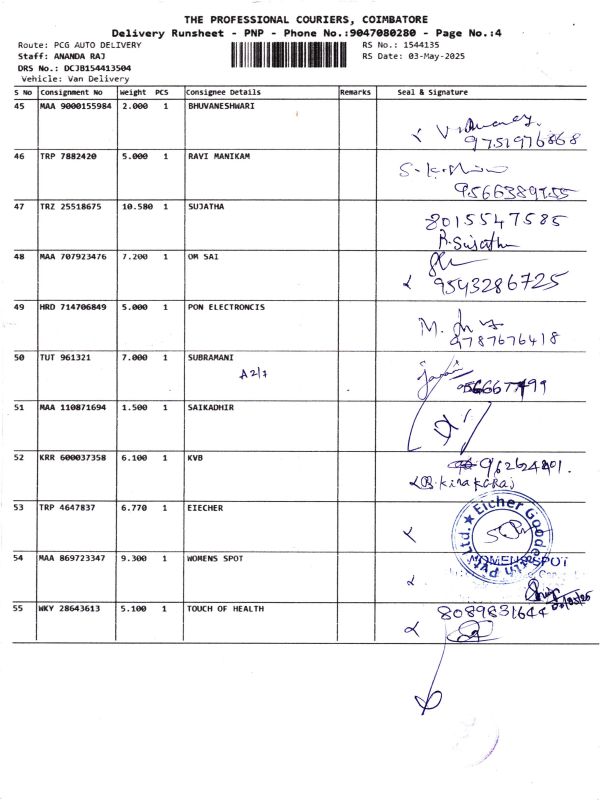 THE PROFESSIONAL COURIERS, COIMBATORE
Delivery Runsheet - PNP - Phone No.:9047080280 - Page No.:4
Route: PCG AUTO DELIVERY
RS No.: 1544135
Staff: ANANDA RAJ
RS Date: 03-May-2025
DRS No.: DCJB154413504
Vehicle: Van Delivery
S No Consignment No Weight PCS Consignee Details Remarks Seal & Signature
45 MAA 9000155984 2.000 1 BHUVANESHWARI
9751976868
46 TRP 7882420 5.000 1 RAVI MANIKAM
9566389755
47 TRZ 25518675 10.580 1 SUJATHA
8015547585
R.Sujatha
48 MAA 707923476 7.200 1 OM SAI
9543286725
49 HRD 714706849 5.000 1 PON ELECTRONCIS
9787676418
50 TUT 961321 7.000 1 SUBRAMANI
A2/7
51 MAA 110871694 1.500 1 SAIKADHIR
52 KRR 600037358 6.100 1 KVB
53 TRP 4647837 6.770 1 EIECHER
Eicher Goodearth Pvt. Ltd.
54 MAA 869723347 9.300 1 WOMENS SPOT
WOMEN'S SPOT
55 WKY 28643613 5.100 1 TOUCH OF HEALTH
8089831644